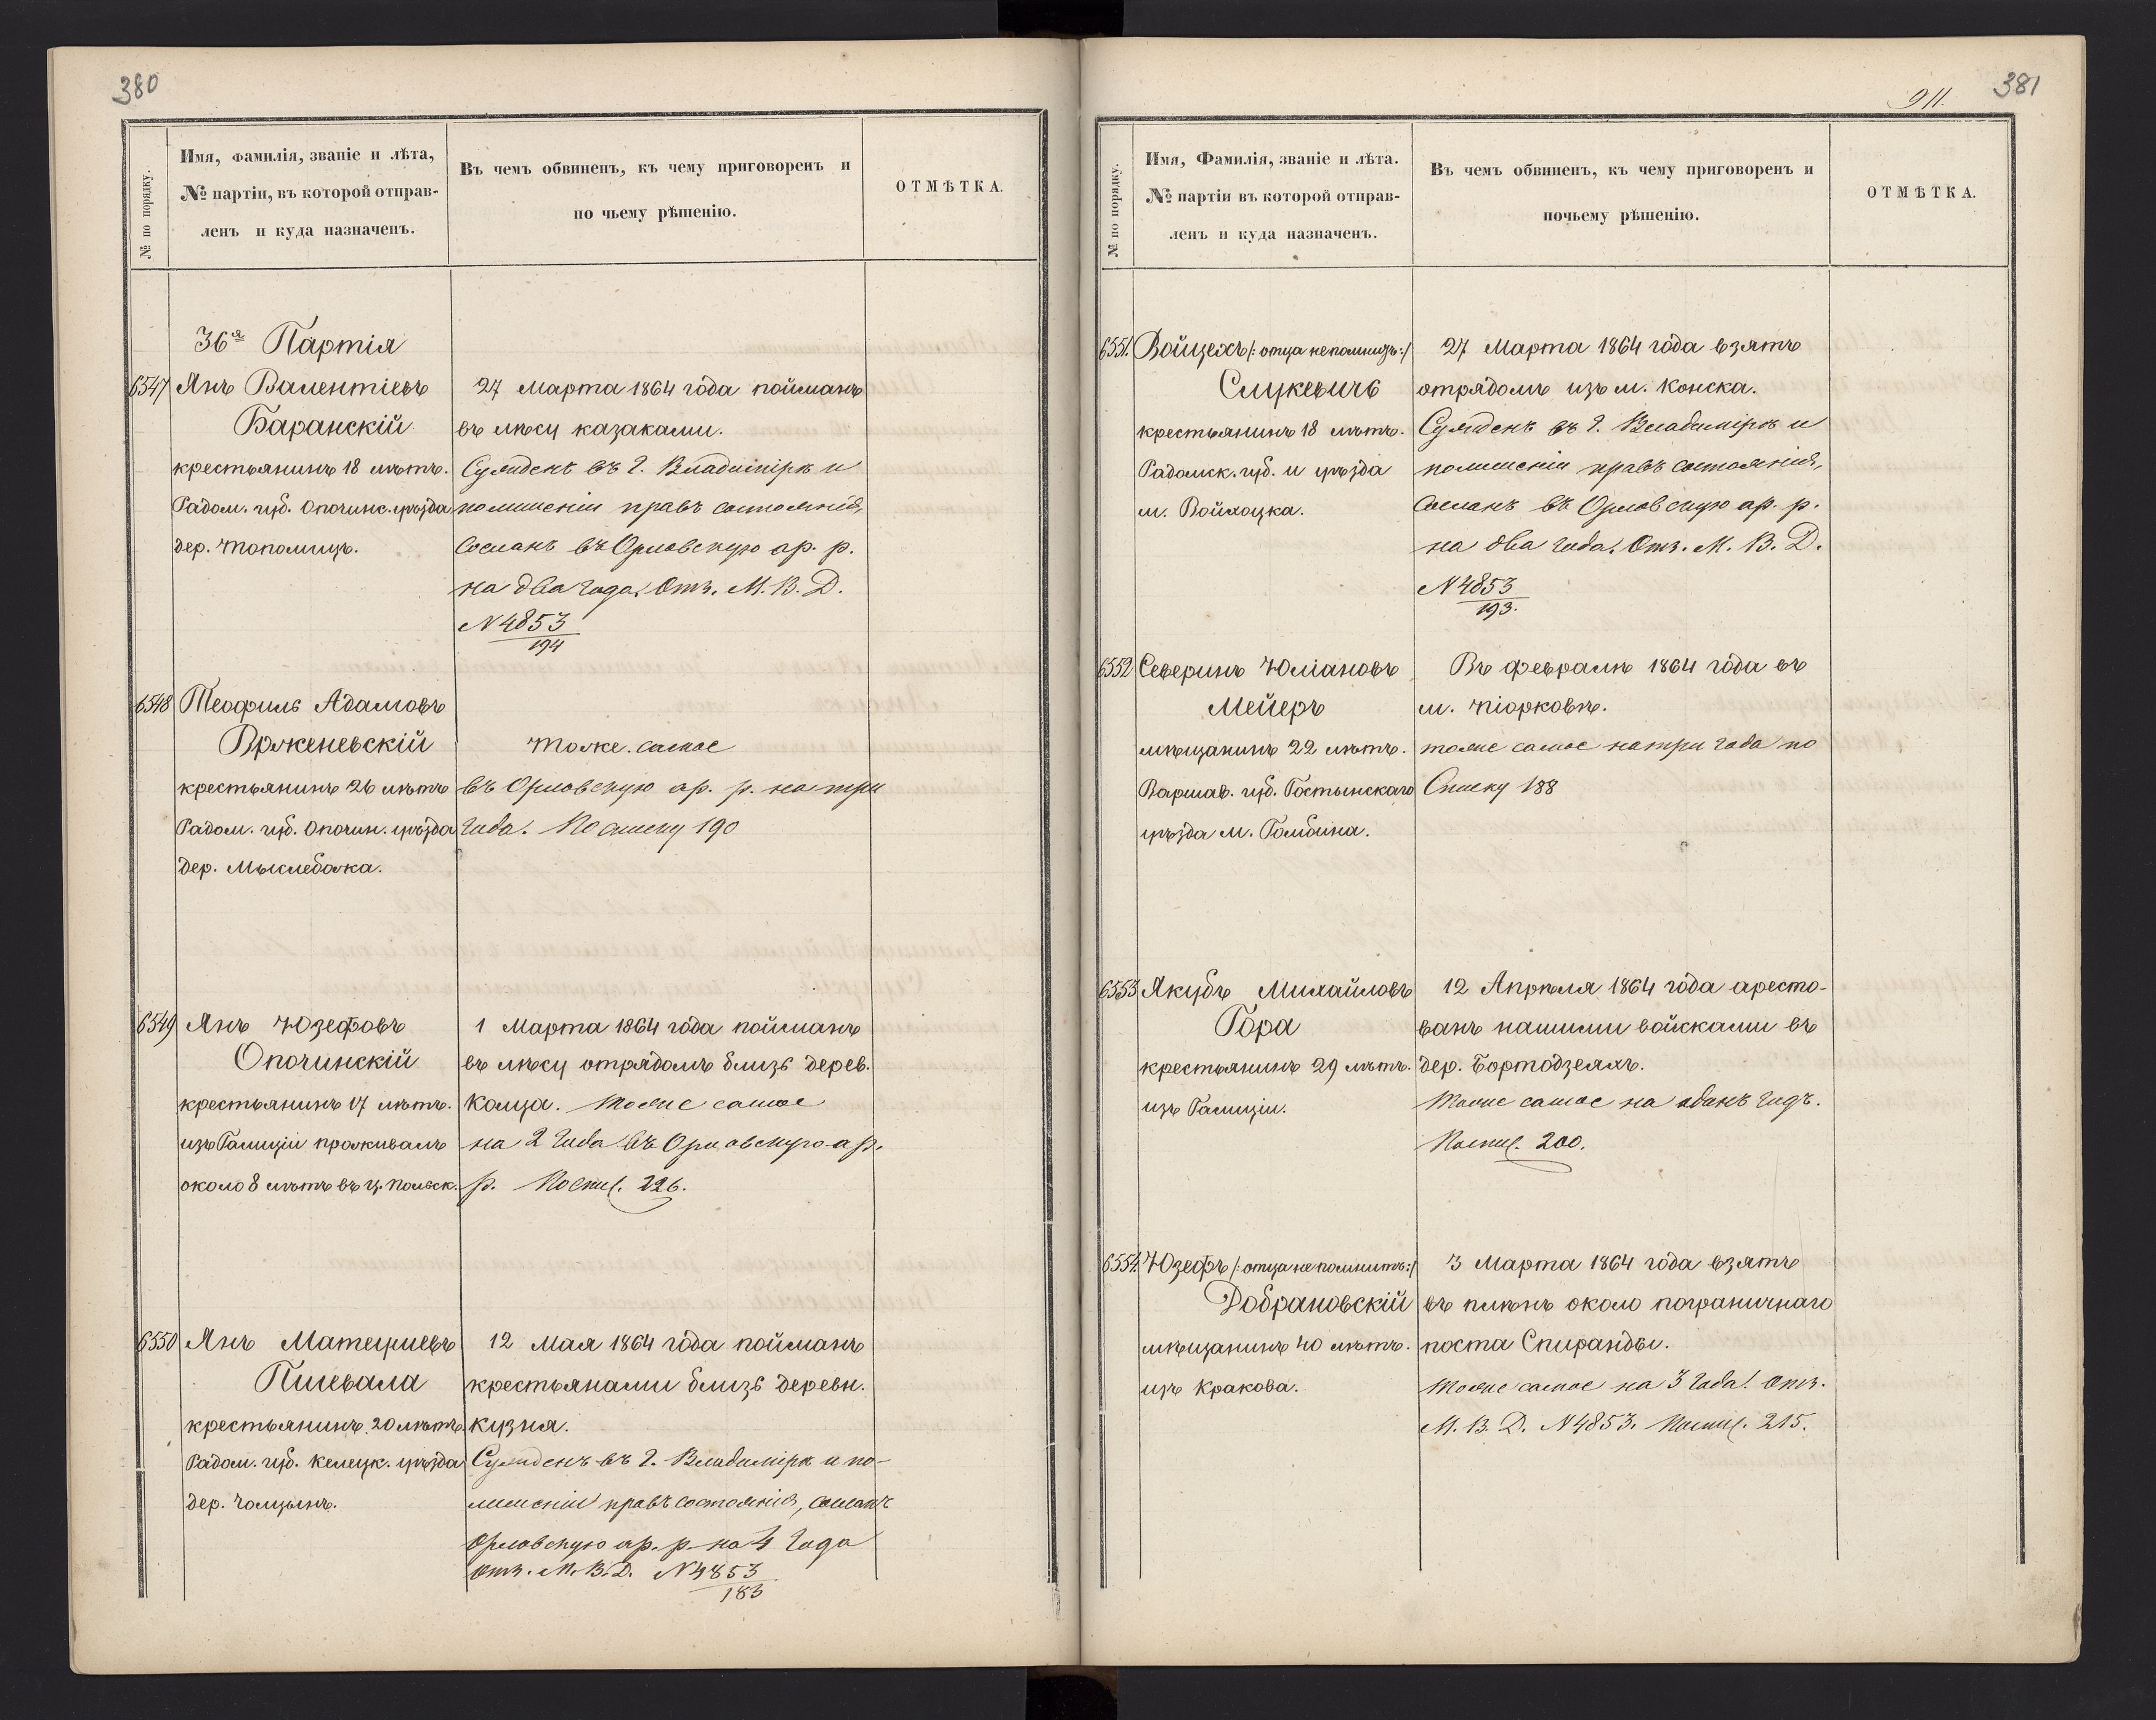 380
№ по порядку.
Имя, фамилія, званіе и лѣта,
№ партіи, въ которой отправ-
ленъ и куда назначенъ.
Въ чемъ обвиненъ, къ чему приговоренъ и
по чьему рѣшенію.
ОТМѢТКА.
36я Партія
6547
Янъ Валентіевъ
Баранскій
крестьянинъ 18 лѣтъ.
Радом. губ. Опочинс. уѣзда
дер. Топомицъ.
27 Марта 1864 года пойманъ
въ лѣсу казаками.
Сужденъ въ г. Владимірѣ и
по лишеніи правъ состоянія,
Сосланъ въ Орловскую ар. р.
на два года. Отз. М. В. Д.
N 4853
194
6548
Теофиль Адамовъ
Врженевскій
крестьянинъ 26 лѣтъ
Радом. губ. Опочин. уѣзда
дер. Мыслебожа.
тоже самое
въ Орловскую ар. р. на три
года. По списку 190
6549
Янъ Юзефовъ
Опочинскій
крестьянинъ 17 лѣтъ.
изъ Галиціи проживалъ
около 8 лѣтъ въ ц. Польск.
1 Марта 1864 года пойманъ
въ лѣсу отрядомъ близь дерев.
Колца. Тоже самое
на 2 года въ Орловскую ар.
р. По спис. 226.
6550
Янъ Матеушевъ
Пилевала
крестьянинъ 20 лѣтъ.
Радом. губ. Келецк. уѣзда
дер. Чолзынъ.
12 Мая 1864 года пойманъ
крестьянами близь деревн.
Кузня.
Сужденъ въ г. Владимірѣ и по-
лишеніи правъ состоянія, сосланъ
Орловскую ар. р. на 4 года
отз. М. В. Д. N 4853
183
381
911.
№ по порядку.
Имя, Фамилія, званіе и лѣта.
№ партіи въ которой отправ-
ленъ и куда назначенъ.
Въ чемъ обвиненъ, къ чему приговоренъ и
почьему рѣшенію.
ОТМѢТКА.
6551.
Войцехъ /: отца непомнитъ :/
Слуцкевичъ
крестьянинъ 18 лѣтъ.
Радомск. губ. и уѣзда
м. Войхоцка.
27 Марта 1864 года взятъ
отрядомъ изъ м. Конска.
Сужденъ въ г. Владимірѣ и
по лишеніи правъ состоянія,
Сосланъ въ Орловскую ар. р.
на два года. Отз. М. В. Д.
N 4853
193.
6552
Северинъ Юліановъ
Мейеръ
мѣщанинъ 22 лѣтъ.
Варшав. губ. Гостынскаго
уѣзда м. Гомбина.
Въ февралѣ 1864 года въ
м. Піорковѣ.
тоже самое на три года по
Списку 188
6553
Якубъ Михайловъ
Гора
крестьянинъ 29 лѣтъ.
изъ Галиціи.
12 Апрѣля 1864 года аресто-
ванъ нашими войсками въ
дер. Бортодзеяхъ.
Тоже самое на одинъ годъ.
По спис. 200.
6554.
Юзефъ /: отца не помнитъ :/
Добрановскій
мѣщанинъ 40 лѣтъ.
изъ Кракова.
3 Марта 1864 года взятъ
въ плѣнъ около пограничнаго
поста Спиранды.
Тоже самое на 3 года. Отз.
М. В. Д. N 4853. По спис. 215.